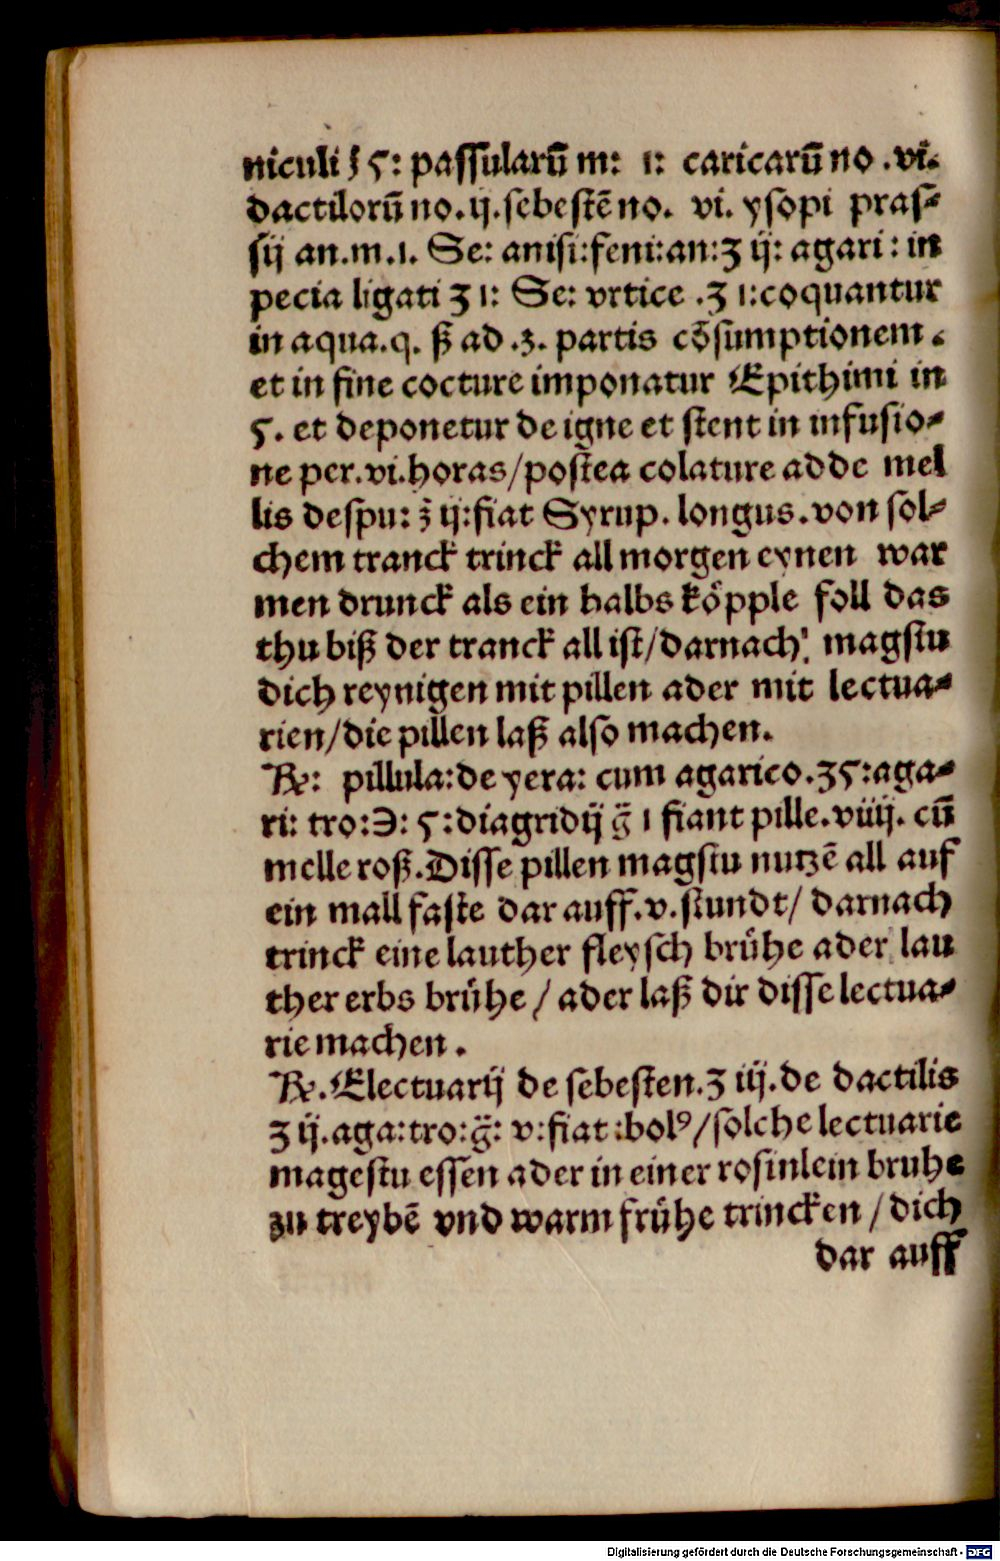 niculi ʒ ⁊: passularū m: 1: caricarū no .vi.
dactilorū no.ij.sebestē no. vi. ysopi pras⸗
sij an.m.1. Se: anisi:feni:an:ʒ ij: agari: in
pecia ligati ʒ 1: Se: vrtice .ʒ 1:coquantur
in aqua.q. ß ad .3. partis cōsumptionem.
et in fine cocture imponatur Epithimi in
ς. et deponetur de igne et stent in infusio⸗
ne per.vi.horas/postea colature adde mel
lis despu: ℥ ij:fiat Syrup. longus.von sol⸗
chem tranck trinck all morgen eynen war
men drunck als ein halbs köpple foll das
thu biß der tranck all ist/darnach: magstu
dich reynigen mit pillen ader mit lectua⸗
rien/die pillen laß also machen.
℞: pillula:de yera: cum agarico.ʒς:aga⸗
ri: tro:℈: ς:diagridij g̃ 1 fiant pille.viiij. cū
melle roß.Disse pillen magstu nutzē all auf
ein mall faste dar auff.v.stundt/ darnach
trinck eine lauther fleysch brühe ader lau
ther erbs brühe / ader laß dir disse lectua⸗
rie machen.
℞.Electuarij de sebesten.ʒ iij.de dactilis
ʒ ij.aga:tro:g̃: v:fiat:bolꝰ/solche lectuarie
magestu essen ader in einer rosinlein bruhe
zu treybē vnd warm frühe trincken /dich
dar auff
Digitalisierung gefördert durch die Deutsche Forschungsgemeinschaft - DFG